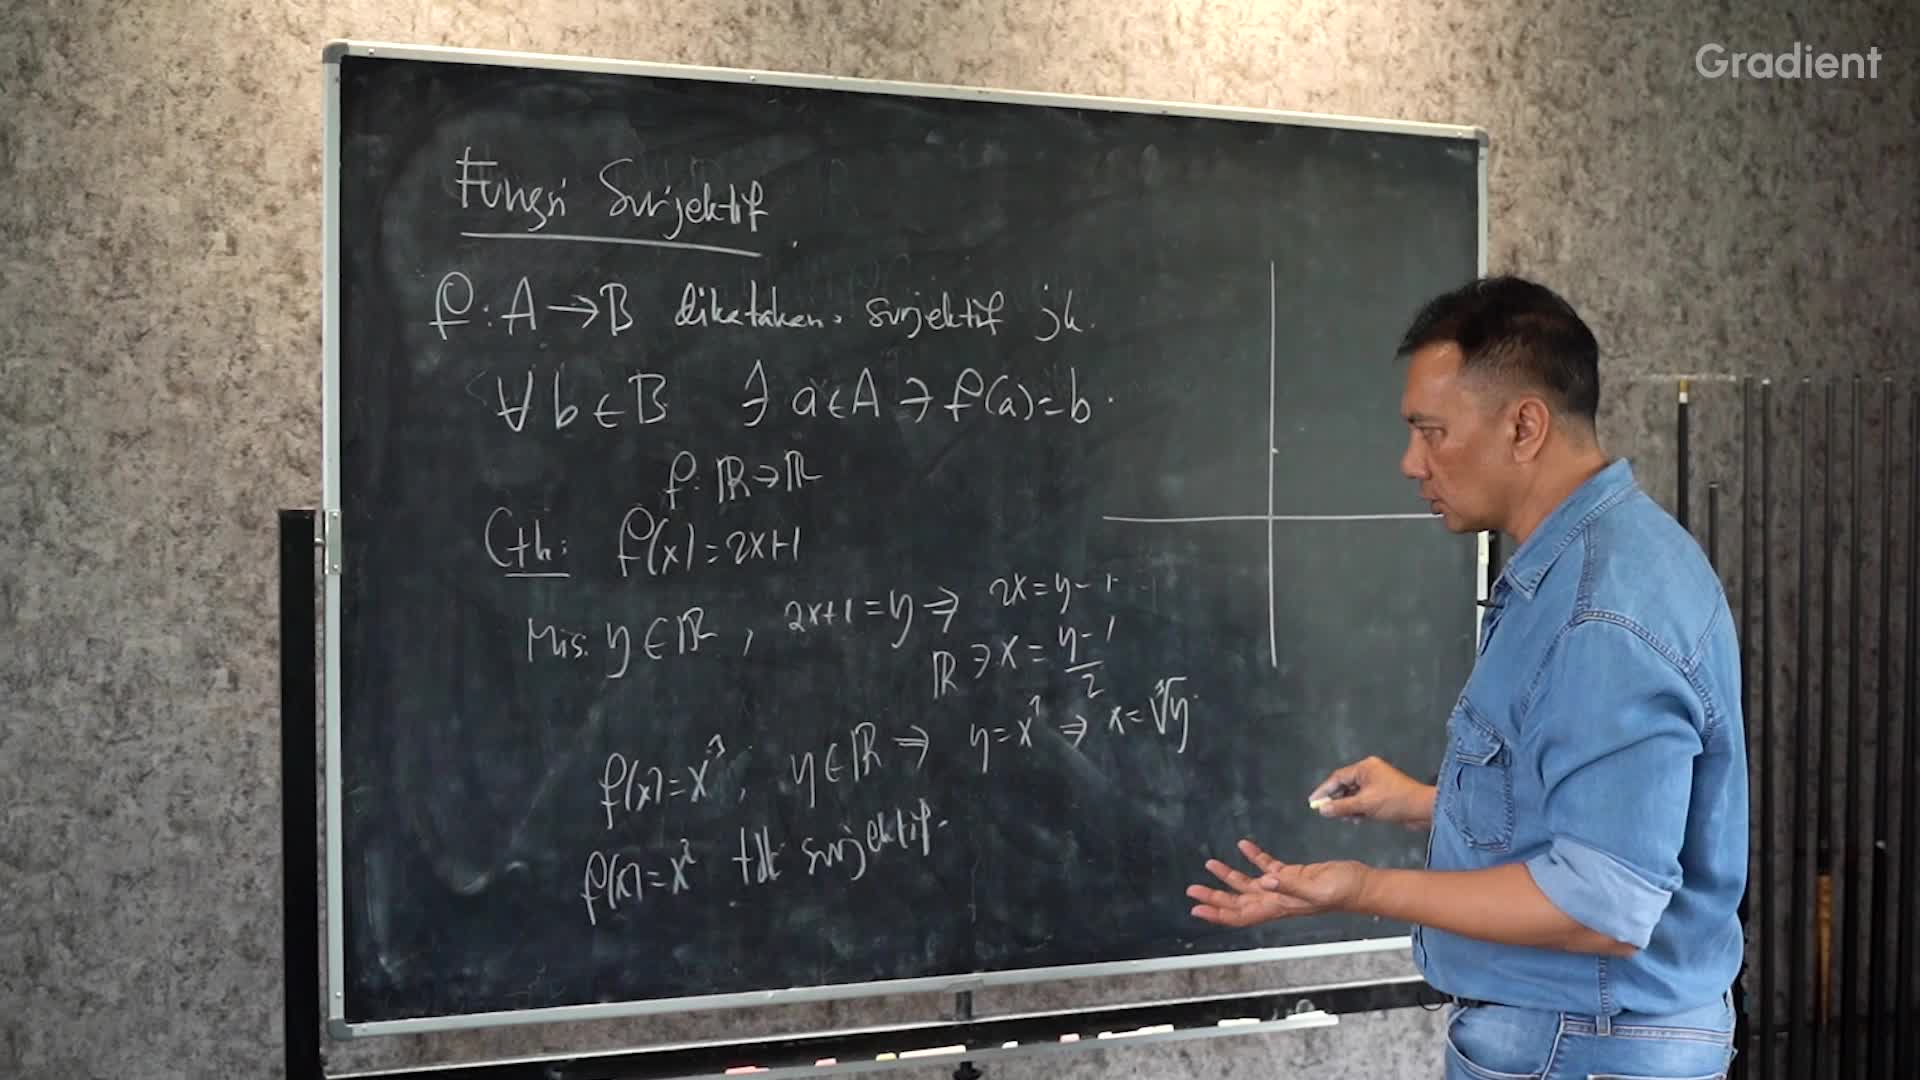 Gradient
Fungsi Surjektif
f: A → B dikatakan surjektif jk.
∀ b ∈ B ∃ a ∈ A ∋ f(a) = b.
f: ℝ → ℝ
Cth: f(x) = 2x+1
Mis. y ∈ ℝ, 2x+1 = y ⇒ 2x = y-1
ℝ ∋ x = (y-1)/2
f(x) = x³, y ∈ ℝ ⇒ y = x³ ⇒ x = ∛y.
f(x) = x² tdk surjektif.